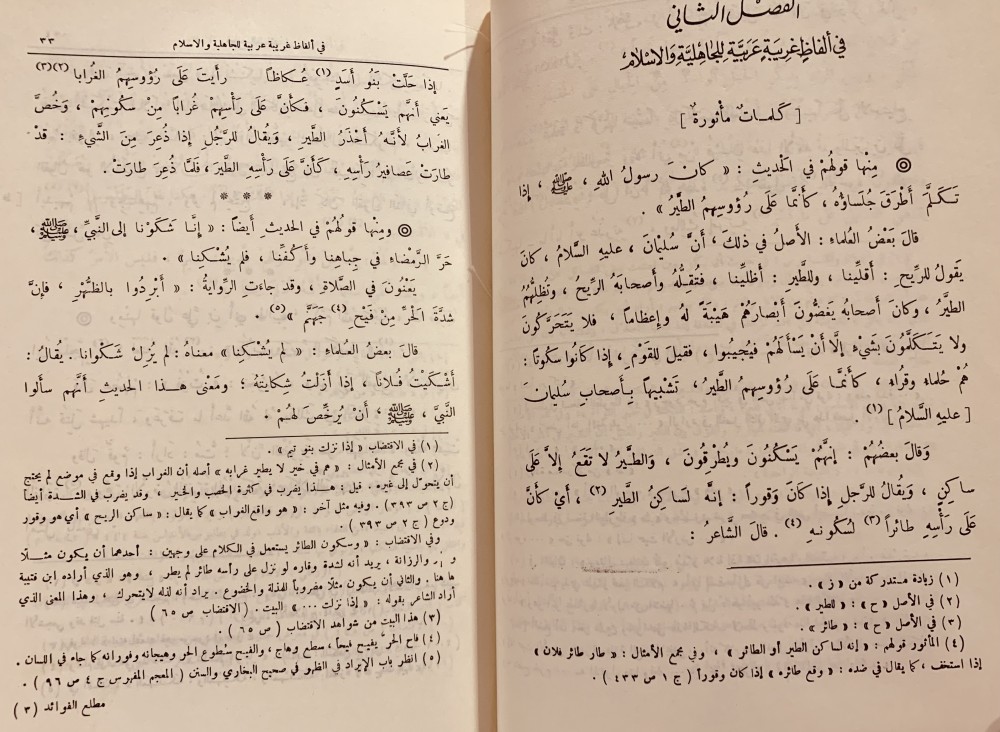 الفصل الثاني
في ألفاظٍ غريبةٍ عَرَبيَّةٍ للجاهليَّةِ والإسلام
[ كلمـات مأثورة ]
◎ مِنْها قولُهُمْ في الحَديثِ : « كانَ رسولُ اللهِ ، ﷺ ، إذا
تَكَلَّمَ أَطْرَقَ جُلَساؤُه ، كأنَّما عَلَى رُؤُوسِهِمُ الطَّيْرُ » .
قالَ بَعْضُ العُلماءِ : الأَصْلُ في ذلكَ ، أَنَّ سُلَيْمانَ ، عليهِ السَّلامُ ، كانَ
يَقولُ للرِّيحِ : أَقِلِّينا ، وللطَّيرِ : أَظِلِّينا ، فَتُقِلُّهُ وأَصحابَهُ الرِّيحُ ، وتُظِلُّهُمُ
الطَّيْرُ ، وكانَ أَصحابُهُ يَغُضُّونَ أَبْصارَهُمْ هَيْبَةً لهُ وإعظاماً ، فلا يَتَحَرَّكونَ
ولا يَتَكلَّمُونَ بشَيءٍ إلَّا أَنْ يَسْأَلَهُمْ فيُجيبوا ، فقيلَ للقَوْمِ ، إذا كانُوا سُكوتاً :
هُمْ حُلماء وقُراء ، كأَنَّما عَلَى رُؤُوسِهِمُ الطَّيْرُ ، تَشْبيهاً بأَصحابِ سُليمانَ
[ عليهِ السَّلامُ ] (١) .
وَقالَ بعضُهُمْ : إنَّهُمْ يَسْكُنُونَ ويُطْرِقُونَ ، وَالطَّيْرُ لا تَقَعُ إلاَّ عَلَى
ساكنٍ ، وَيُقالُ للرَّجلِ إذا كانَ وَقوراً : إنَّهُ لَساكِنُ الطَّيرِ (٢) ، أيْ كأَنَّ
عَلَى رَأْسِهِ طائراً (٣) لسُكُونـهِ (٤) . قالَ الشَّاعرُ :
(١) زيادة مستدركة من « ز » .
(٢) في الأصل « ح » : « للطير » .
(٣) في الأصل « ح » : « طائر » .
(٤) المأثور قولهم : « إنه لساكن الطير أو الطائر » ، وفي مجمع الأمثال : « طار طائر فلان »
إذا استخف ، كما يقال في ضده : « وقع طائره » إذا كان وقوراً ( ج ١ ص ٤٣٣ ) .
في ألفاظ غريبة عربية للجاهلية والاسلام ٣٣
إذا حَلَّتْ بَنُو أَسَدٍ (١) عُكاظاً رأَيتَ عَلَى رُؤوسِهِمُ الغُرابا (٢)(٣)
يَعني أنَّهم يَسْكُنُونَ ، فكأَنَّ عَلَى رَأْسِهِمْ غُراباً مِنْ سُكونِهِمْ ، وَخُصَّ
الغرابُ لأَنَّـهُ أَحْذَرُ الطَّيرِ ، وَيُقالُ للرَّجُلِ إذا ذُعرَ مِنَ الشَّيءِ : قدْ
طارَتْ عَصافيرُ رأسِهِ ، كأَنَّ عَلَى رأسِهِ الطَّيرَ ، فلَمَّا ذُعرَ طارَتْ .
* * *
◎ ومِنْها قولُهُمْ في الحديثِ أَيضاً : « إنَّا شَكَوْنا إلى النَّبيِّ ، ﷺ ،
حَرَّ الرَّمْضاءِ في جِباهِنا وأَكُفِّنا ، فلم يُشْكِنا » .
يَعْنُونَ في الصَّلاةِ ، وقد جاءَتِ الرِّوايةُ : « أَبْرِدُوا بالظُّهْرِ ، فإنَّ
شدَّةَ الحَرِّ مِنْ فَيْحِ (٤) جَهَنَّمَ » (٥) .
قالَ بعضُ العُلماءِ : « لم يُشْكِنا » معناهُ : لم يُزِلْ شَكْوانا . يقالُ :
أَشْكَيْتُ فُلاناً ، إذا أَزَلْتُ شِكايتَهُ ؛ ومَعْنَى هـذا الحديثِ أنَّهم سأَلوا
النَّبيَّ ، ﷺ ، أَنْ يُرَخِّصَ لهُـمْ .
(١) في الاقتضاب « إذا نزلت بنو تيم » .
(٢) في مجمع الأمثال : « هم في خير لا يطير غرابه » أصله أن الغراب إذا وقع في موضع لم يحتج
أن يتحول إلى غيره . قيل : هـذا يضرب في كثرة الخصب والخير ، وقد يضرب في الشدة أيضاً
( ج ٢ ص ٣٩٣ ) . وفيه مثل آخر : « هو واقع الغراب » كما يقال : « ساكن الريح » أي هو وقور
ودوع ( ج ٢ ص ٣٩٣ ) .
وفي الاقتضاب : « وسكون الطائر يستعمل في الكلام على وجهين : أحدهما أن يكون مثـلًا
والرزانة ، يريد أنه لشدة وقاره لو نزل على رأسه طائر لم يطر ، وهو الذي أراده ابن قتيبة
ها هنا . والثاني أن يكون مثلًا مضروباً للمذلة والخضوع . يراد أنه لذله لايتحرك ، وهذا المعنى الذي
أراد الشاعر بقوله : « إذا نزلت ... » البيت . ( الاقتضاب ص ٦٥ )
(٣) هذا البيت من شواهد الاقتضاب ( ص ٦٥ ) .
(٤) فاح الحر يفيح فيحاً ، سطع وهاج ، والفيح سُطوع الحر وهيجانه وفورانه كما جاء في اللسان .
(٥) انظر باب الإبراد في الظهر في صحيح البخاري والسنن ( المعجم المفهرس ج ٤ ص ٩٦ ) .
مطلع الفوائد ( ٣ )